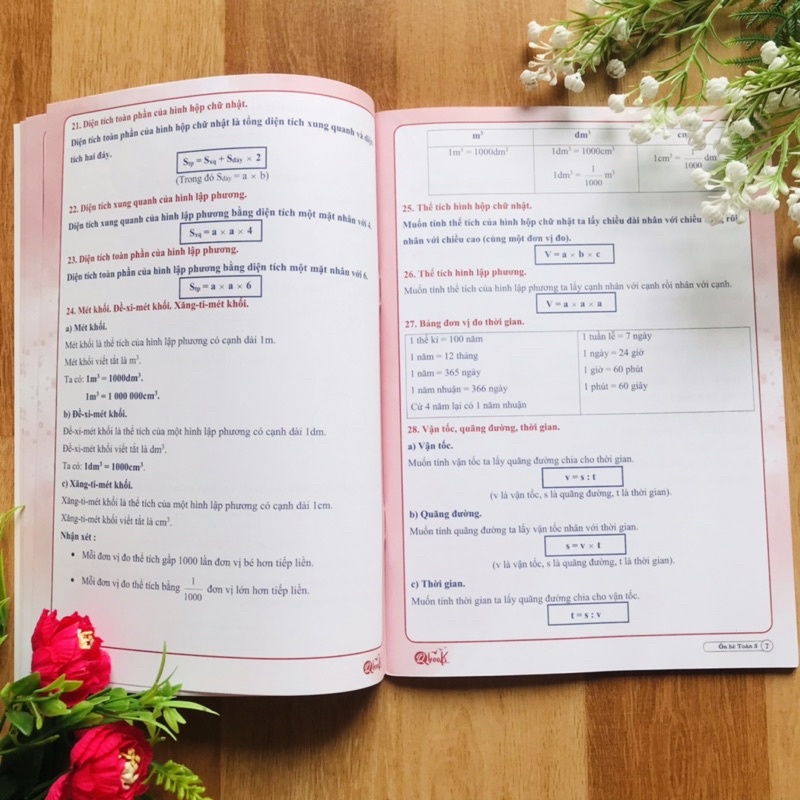 21. Diện tích toàn phần của hình hộp chữ nhật.
Diện tích toàn phần của hình hộp chữ nhật là tổng diện tích xung quanh và
tích hai đáy.
Stp = Sxq + Sđáy × 2
(Trong đó Sđáy = a × b)
22. Diện tích xung quanh của hình lập phương.
Diện tích xung quanh của hình lập phương bằng diện tích một mặt nhân với 4.
Sxq = a × a × 4
23. Diện tích toàn phần của hình lập phương.
Diện tích toàn phần của hình lập phương bằng diện tích một mặt nhân với 6.
Stp = a × a × 6
24. Mét khối. Đề-xi-mét khối. Xăng-ti-mét khối.
a) Mét khối.
Mét khối là thể tích của hình lập phương có cạnh dài 1m.
Mét khối viết tắt là m³.
Ta có: 1m³ = 1000dm³.
1m³ = 1 000 000cm³.
b) Đề-xi-mét khối.
Đề-xi-mét khối là thể tích của một hình lập phương có cạnh dài 1dm.
Đề-xi-mét khối viết tắt là dm³.
Ta có: 1dm³ = 1000cm³.
c) Xăng-ti-mét khối.
Xăng-ti-mét khối là thể tích của một hình lập phương có cạnh dài 1cm.
Xăng-ti-mét khối viết tắt là cm³.
Nhận xét :
• Mỗi đơn vị đo thể tích gấp 1000 lần đơn vị bé hơn tiếp liền.
• Mỗi đơn vị đo thể tích bằng 1/1000 đơn vị lớn hơn tiếp liền.
QbooK
m³ dm³
1m³ = 1000dm³ 1dm³ = 1000cm³ 1cm³ = 1/1000 dm
1dm³ = 1/1000 m³
25. Thể tích hình hộp chữ nhật.
Muốn tính thể tích của hình hộp chữ nhật ta lấy chiều dài nhân với chiều rồi
nhân với chiều cao (cùng một đơn vị đo).
V = a × b × c
26. Thể tích hình lập phương.
Muốn tính thể tích của hình lập phương ta lấy cạnh nhân với cạnh rồi nhân với cạnh.
V = a × a × a
27. Bảng đơn vị đo thời gian.
1 thế kỉ = 100 năm 1 tuần lễ = 7 ngày
1 năm = 12 tháng 1 ngày = 24 giờ
1 năm = 365 ngày 1 giờ = 60 phút
1 năm nhuận = 366 ngày 1 phút = 60 giây
Cứ 4 năm lại có 1 năm nhuận
28. Vận tốc, quãng đường, thời gian.
a) Vận tốc.
Muốn tính vận tốc ta lấy quãng đường chia cho thời gian.
v = s : t
(v là vận tốc, s là quãng đường, t là thời gian).
b) Quãng đường.
Muốn tính quãng đường ta lấy vận tốc nhân với thời gian.
s = v × t
(v là vận tốc, s là quãng đường, t là thời gian).
c) Thời gian.
Muốn tính thời gian ta lấy quãng đường chia cho vận tốc.
t = s : v
QbooK
Ôn hè Toán 5 7